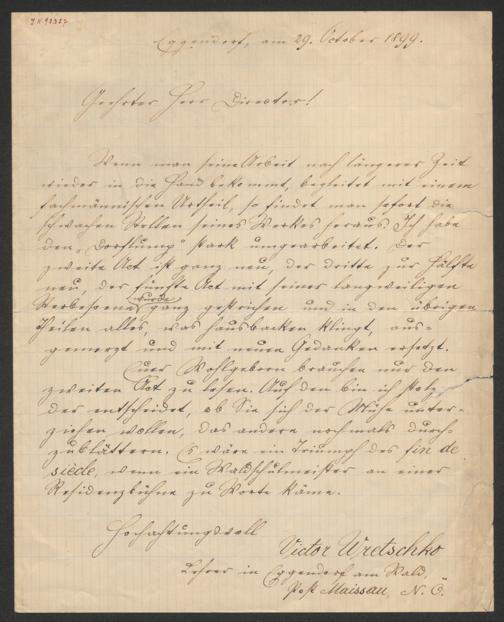 J.N. 92327
Eggendorf, am 29. October 1899.
Geehrter Herr Director!
Wenn man seine Arbeit nach längerer Zeit
wieder in die Hand bekommt, begleitet mit einem
fachmännischen Urtheil, so findet man sofort die
schwachen Stellen seines Werkes heraus. Ich habe
den „Dorflump" stark umgearbeitet. Der
zweite Act ist ganz neu, der dritte zur Hälfte
neu, der fünfte Act mit seiner langweiligen
Werbescene wurde ganz gestrichen und in den übrigen
Theilen alles, was hausbacken klingt, aus-
gemerzt und mit neuen Gedanken ersetzt.
Euer Wohlgeborn brauchen nur den
zweiten Act zu lesen. Auf den bin ich stolz,
der entscheidet, ob Sie sich der Mühe unter-
ziehen wollen, das andere nochmals durch-
zublättern. Es wäre ein Triumph des fin de
siècle, wenn ein Waldschulmeister an einer
Residenzbühne zu Worte käme.
Hochachtungsvoll
Victor Wretschko
Lehrer in Eggendorf am Wald,
Post Maissau, N. Ö.